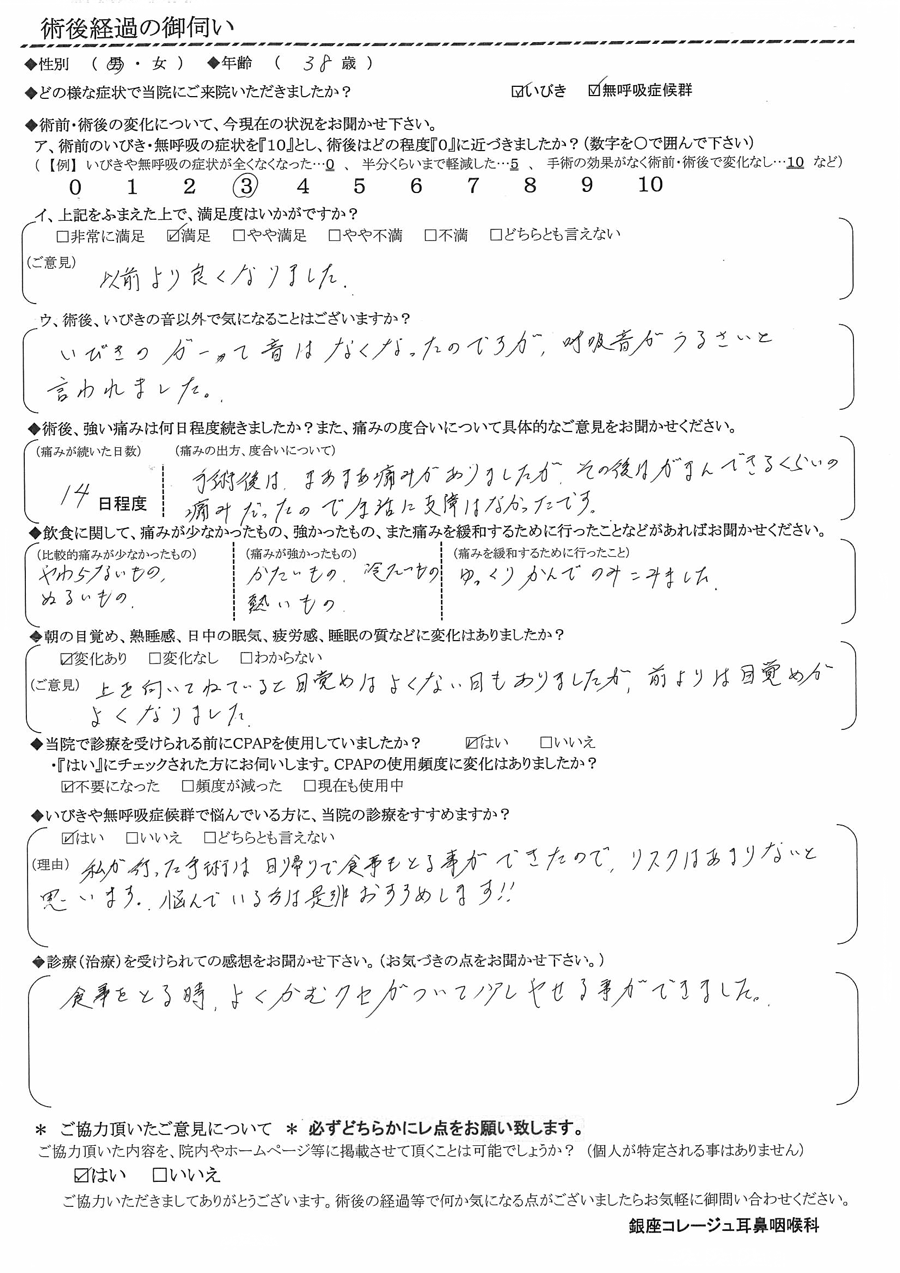 術後経過の御伺い
◆性別 （ 男 ・ 女 ） ◆年齢 （ 38 歳 ）
◆どの様な症状で当院にご来院いただきましたか？ ☑いびき ☑無呼吸症候群
◆術前・術後の変化について、今現在の状況をお聞かせ下さい。
ア、術前のいびき・無呼吸の症状を『10』とし、術後はどの程度『0』に近づきましたか？（数字を○で囲んで下さい）
（【例】 いびきや無呼吸の症状が全くなくなった…0 、 半分くらいまで軽減した…5 、 手術の効果がなく術前・術後で変化なし…10 など）
0 1 2 ③ 4 5 6 7 8 9 10
イ、上記をふまえた上で、満足度はいかがですか？
□非常に満足 ☑満足 □やや満足 □やや不満 □不満 □どちらとも言えない
（ご意見） 以前より良くなりました.
ウ、術後、いびきの音以外で気になることはございますか？
いびきの ガーって音は なくなったのですが, 呼吸音がうるさいと
言われました。
◆術後、強い痛みは何日程度続きましたか？また、痛みの度合いについて具体的なご意見をお聞かせください。
（痛みが続いた日数） （痛みの出方、度合いについて）
14 日程度 手術後は、まあまあ痛みがありましたが、その後はがまんできるくらいの
痛みだったので生活に支障はなかったです。
◆飲食に関して、痛みが少なかったもの、強かったもの、また痛みを緩和するために行ったことなどがあればお聞かせください。
（比較的痛みが少なかったもの） （痛みが強かったもの） （痛みを緩和するために行ったこと）
やわらかいもの, かたいもの、冷たいもの ゆっくりかんでのみこみました.
ぬるいもの. 熱いもの.
◆朝の目覚め、熟睡感、日中の眠気、疲労感、睡眠の質などに変化はありましたか？
☑変化あり □変化なし □わからない
（ご意見） 上を向いてねていると目覚めはよくない日もありましたが, 前よりは目覚めが
よくなりました.
◆当院で診療を受けられる前にCPAPを使用していましたか？ ☑はい □いいえ
・『はい』にチェックされた方にお伺いします。CPAPの使用頻度に変化はありましたか？
☑不要になった □頻度が減った □現在も使用中
◆いびきや無呼吸症候群で悩んでいる方に、当院の診療をすすめますか？
☑はい □いいえ □どちらとも言えない
（理由） 私が行った手術は日帰りで食事もとる事ができたので, リスクはあまりないと
思います。悩んでいる方は是非おすすめします!!
◆診療（治療）を受けられての感想をお聞かせ下さい。（お気づきの点をお聞かせ下さい。）
食事をとる時, よくかむクセがついて少しヤせる事ができました。
＊ ご協力頂いたご意見について ＊ 必ずどちらかにレ点をお願い致します。
ご協力頂いた内容を、院内やホームページ等に掲載させて頂くことは可能でしょうか？（個人が特定される事はありません）
☑はい □いいえ
ご協力いただきましてありがとうございます。術後の経過等で何か気になる点がございましたらお気軽に御問い合わせください。
銀座コレージュ耳鼻咽喉科